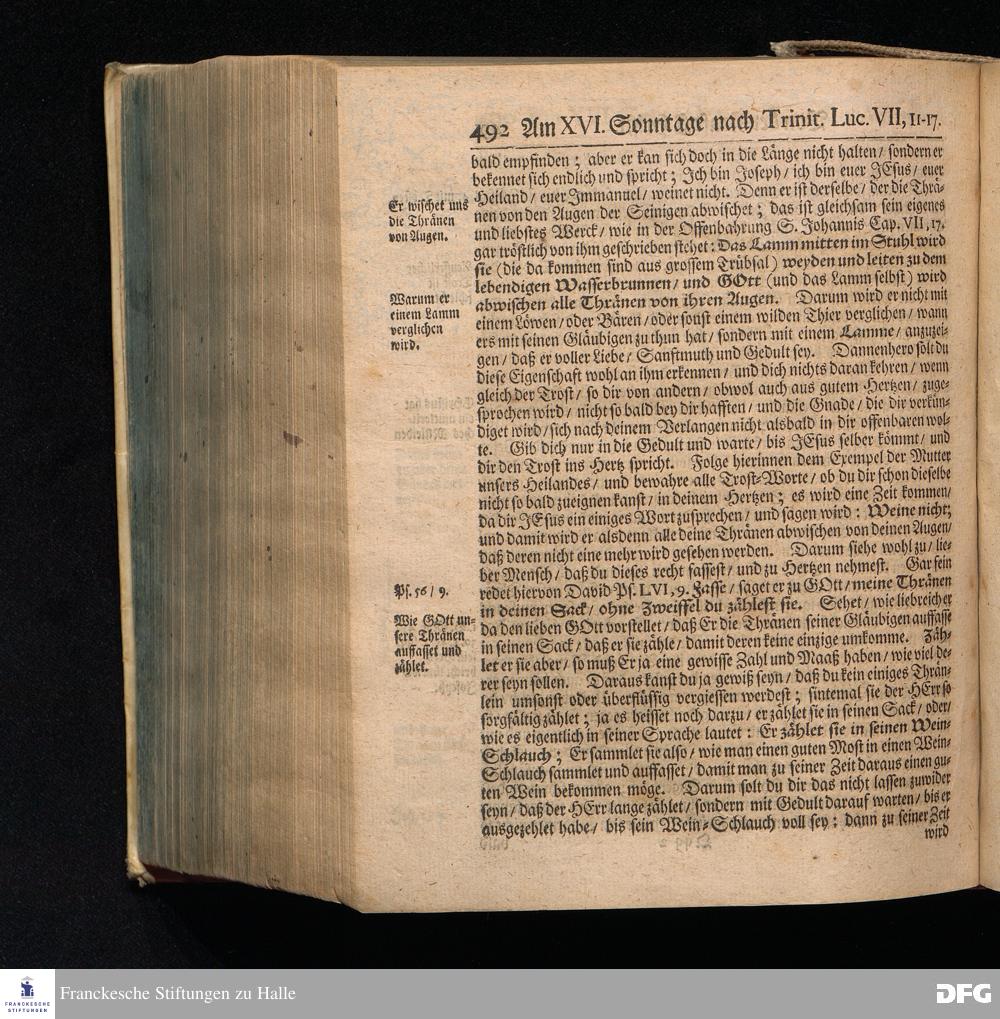 492 Am XVI. Sonntage nach Trinit. Luc. VII, 11-17.
bald empfinden; aber er kan sich doch in die Länge nicht halten/ sondern er
bekennet sich endlich und spricht; Ich bin Joseph/ ich bin euer JEsus/ euer
Heiland/ euer Immanuel/ weinet nicht. Denn er ist derselbe/ der die Thrä-
nen von den Augen der Seinigen abwischet; das ist gleichsam sein eigenes
und liebstes Werck/ wie in der Offenbahrung S. Johannis Cap. VII, 17.
gar tröstlich von ihm geschrieben stehet: Das Lamm mitten im Stuhl wird
sie (die da kommen sind aus grossem Trübsal) weyden und leiten zu dem
lebendigen Wasserbrunnen/ und GOtt (und das Lamm selbst) wird
abwischen alle Thränen von ihren Augen. Darum wird er nicht mit
einem Löwen/ oder Bären/ oder sonst einem wilden Thier verglichen/ wann
ers mit seinen Gläubigen zu thun hat/ sondern mit einem Lamme/ anzuzei-
gen/ daß er voller Liebe/ Sanftmuth und Gedult sey. Dannenhero solt du
diese Eigenschaft wohl an ihm erkennen/ und dich nichts daran kehren/ wenn
gleich der Trost/ so dir von andern/ obwol auch aus gutem Hertzen/ zuge-
sprochen wird/ nicht so bald bey dir hafften/ und die Gnade/ die dir verkün-
diget wird/ sich nach deinem Verlangen nicht alsbald in dir offenbaren wol-
te. Gib dich nur in die Gedult und warte/ bis JEsus selber kömmt/ und
dir den Trost ins Hertz spricht. Folge hierinnen dem Exempel der Mutter
unsers Heilandes/ und bewahre alle Trost-Worte/ ob du dir schon dieselbe
nicht so bald zueignen kanst/ in deinem Hertzen; es wird eine Zeit kommen/
da dir JEsus ein einiges Wort zusprechen/ und sagen wird: Weine nicht;
und damit wird er alsdenn alle deine Thränen abwischen von deinen Augen/
daß deren nicht eine mehr wird gesehen werden. Darum siehe wohl zu/ lie-
ber Mensch/ daß du dieses recht fassest/ und zu Hertzen nehmest. Gar fein
redet hiervon David Ps. LVI, 9. Fasse/ saget er zu GOtt/ meine Thränen
in deinen Sack/ ohne Zweiffel du zählest sie. Sehet/ wie liebreich er
da den lieben GOtt vorstellet/ daß Er die Thränen seiner Gläubigen auffasse
in seinen Sack/ daß er sie zähle/ damit deren keine einzige umkomme. Zäh-
let er sie aber/ so muß Er ja eine gewisse Zahl und Maaß haben/ wie viel de-
rer seyn sollen. Daraus kanst du ja gewiß seyn/ daß du kein einiges Thrän-
lein umsonst oder überflüssig vergiessen werdest; sintemal sie der HErr so
sorgfältig zählet; ja es heisset noch darzu/ er zählet sie in seinen Sack/ oder/
wie es eigentlich in seiner Sprache lautet: Er zählet sie in seinen Wein-
Schlauch; Er sammlet sie also/ wie man einen guten Most in einen Wein-
Schlauch sammlet und auffasset/ damit man zu seiner Zeit daraus einen gu-
ten Wein bekommen möge. Darum solt du dir das nicht lassen zuwider
seyn/ daß der HErr lange zählet/ sondern mit Gedult darauf warten/ bis er
ausgezehlet habe/ bis sein Wein-Schlauch voll sey; dann zu seiner Zeit
wird
Er wischet uns
die Thränen
von Augen.
Warum er
einem Lamm
verglichen
wird.
Ps. 56/ 9.
Wie GOtt un-
sere Thränen
auffasset und
zählet.
FRANCKESCHE
STIFTUNGEN
Franckesche Stiftungen zu Halle
DFG